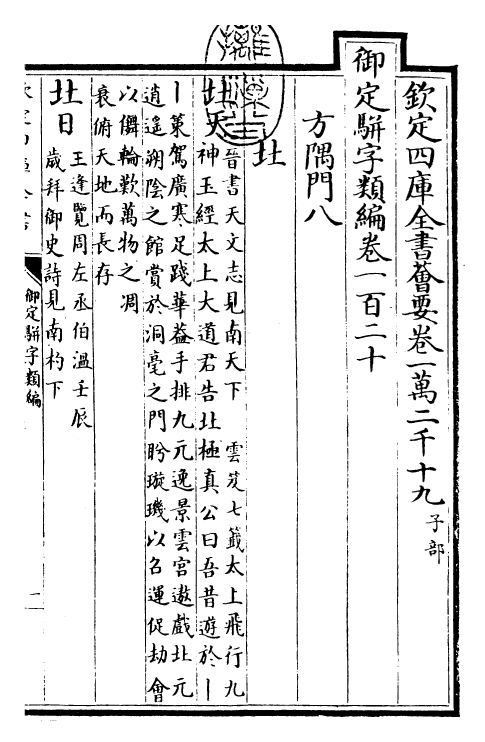 欽定四庫全書薈要卷一萬二千十九 子部
御定駢字類編卷一百二十
方隅門八
北
北天 晉書天文志見南天下 雲笈七籤太上飛行九
神玉經太上大道君告北極真公曰吾昔遊於丨
丨策駕廣寒足踐華葢手排九元逸景雲宮遨戲北元
逍遥朔陰之館賞於洞毫之門眄璇璣以召運促劫會
以儛輪歎萬物之凋
衰俯天地而長存
北日 王逢覽周左丞伯溫壬辰
歲拜御史詩見南杓下
御定駢字類編
一